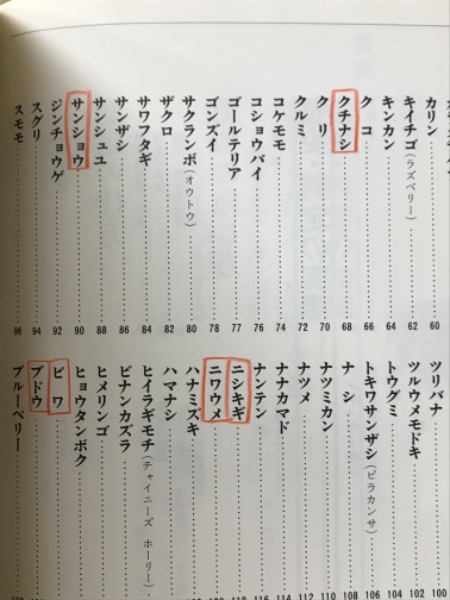 カリン……60
キイチゴ(ラズベリー)……62
キンカン……64
ク コ……66
クチナシ……68
ク リ……70
クルミ……72
コケモモ……74
コショウバイ……76
ゴールテリア……77
ゴンズイ……78
サクランボ(オウトウ)……80
ザクロ……82
サワフタギ……84
サンザシ……86
サンシュユ……88
サンショウ……90
ジンチョウゲ……92
スグリ……94
スモモ……96
ツリバナ……100
ツルウメモドキ……102
トウグミ……104
トキワサンザシ(ピラカンサ)……106
ナ シ……108
ナツミカン……110
ナツメ……112
ナナカマド……114
ナンテン……
ニシキギ……
ニワウメ……
ハナミズキ……
ハマナシ……
ヒイラギモチ(チャイニーズ ホーリー)……
ビナンカズラ……
ヒメリンゴ……
ヒョウタンボク……
ビ ワ……
ブドウ……
ブルーベリー……